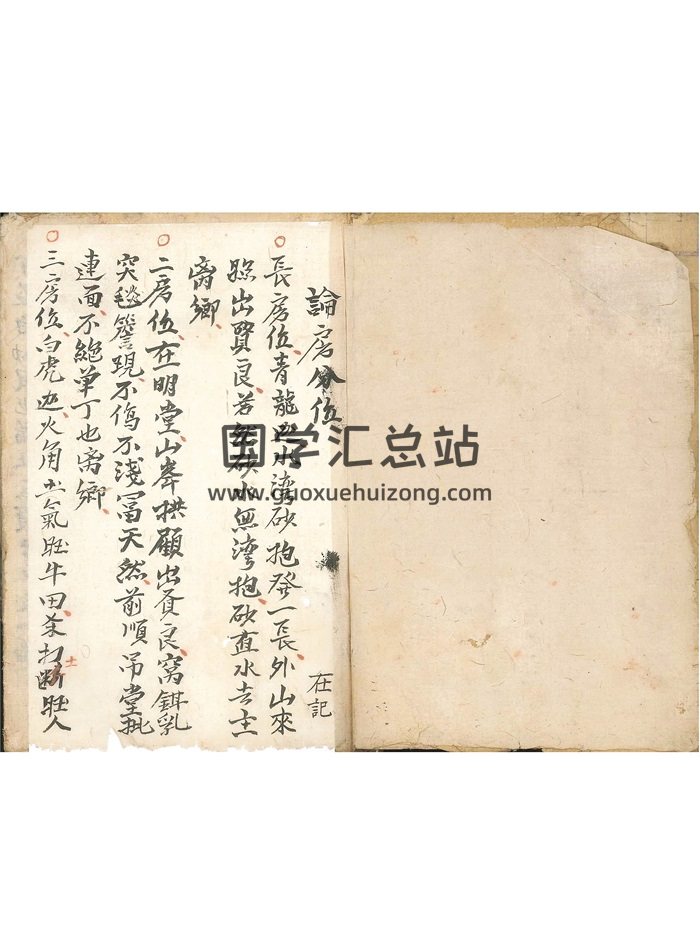 論房分位
在記
長房位青龍边水湾砂抱發一長外山來
照出賢良若 砂水無湾抱砂直水去主
离鄉
二房位在明堂山峯拱顧出賢良窩鉗乳
突毯簷現不傷不淺冨天然前順吊堂
連面不絶单丁也离鄉
三房位白虎边火角土氣旺牛田 打断旺人
国学汇总站
www.guoxuehuizong.com